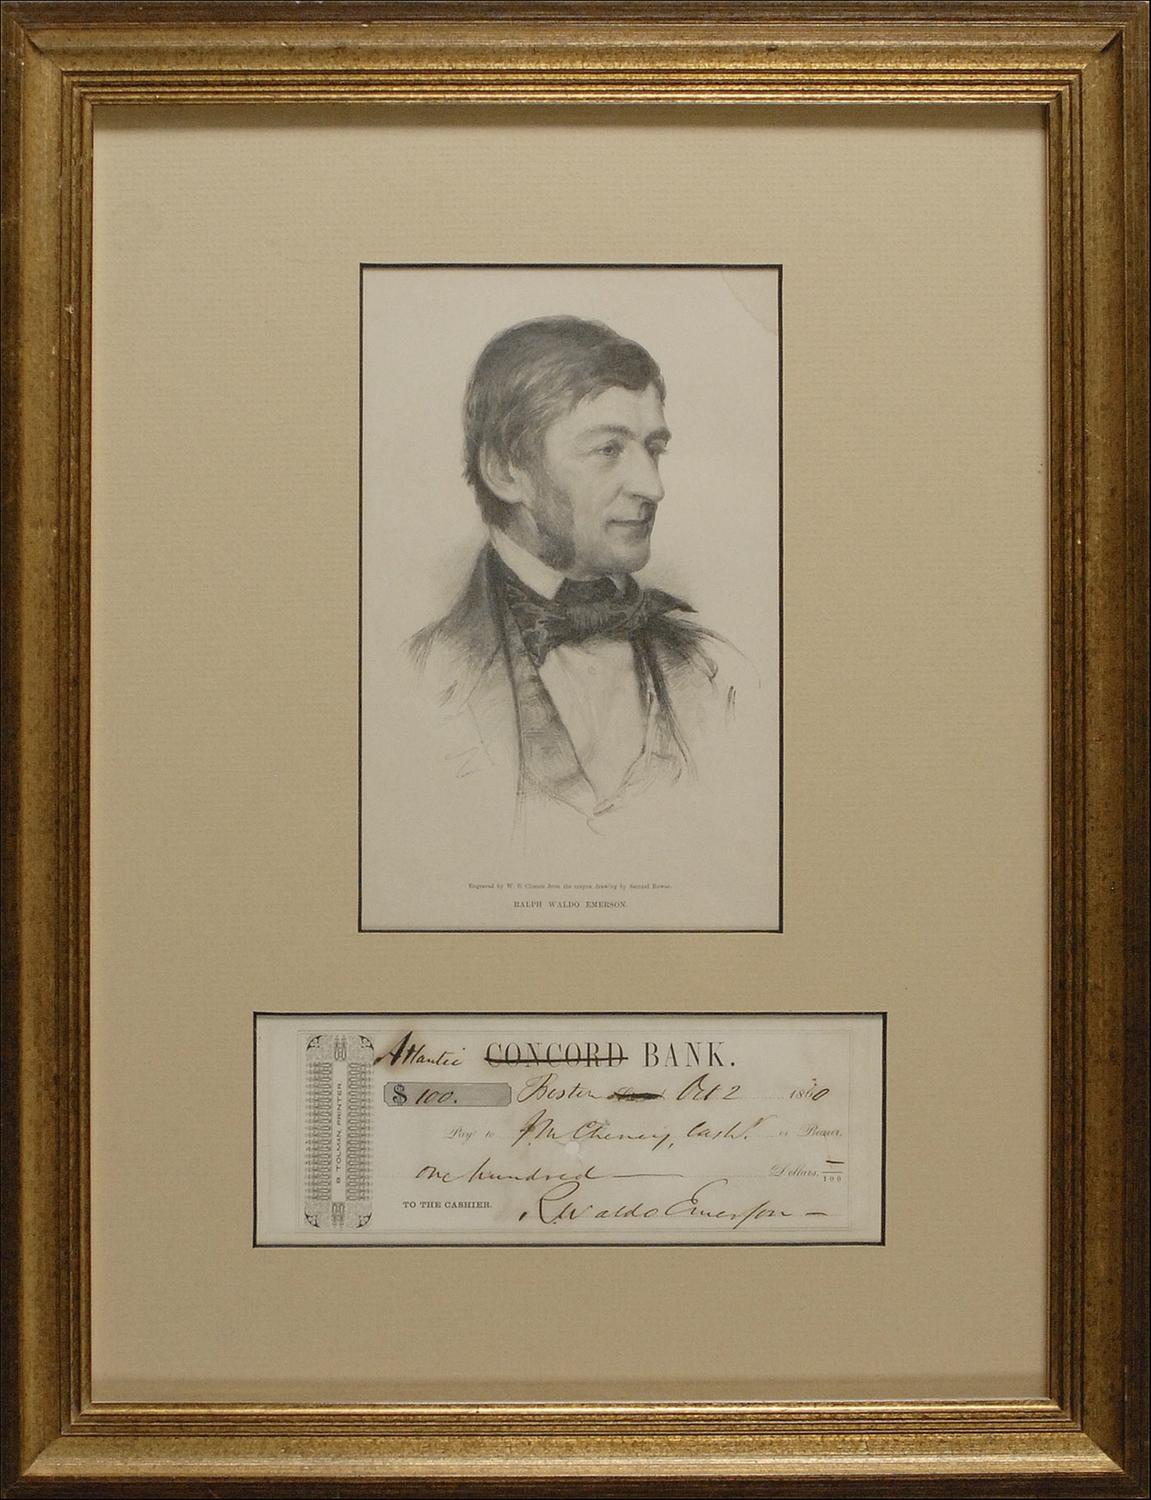 Engraved by W. B. Closson from the crayon drawing by Samuel Rowse.
RALPH WALDO EMERSON.
Atlantic CONCORD BANK.
$ 100. Boston Oct 2 1860
Pay to J. M. Cheney, Cash. or Bearer.
one hundred Dollars. 100
TO THE CASHIER. R. Waldo Emerson
B. TOLMAN, PRINTER.